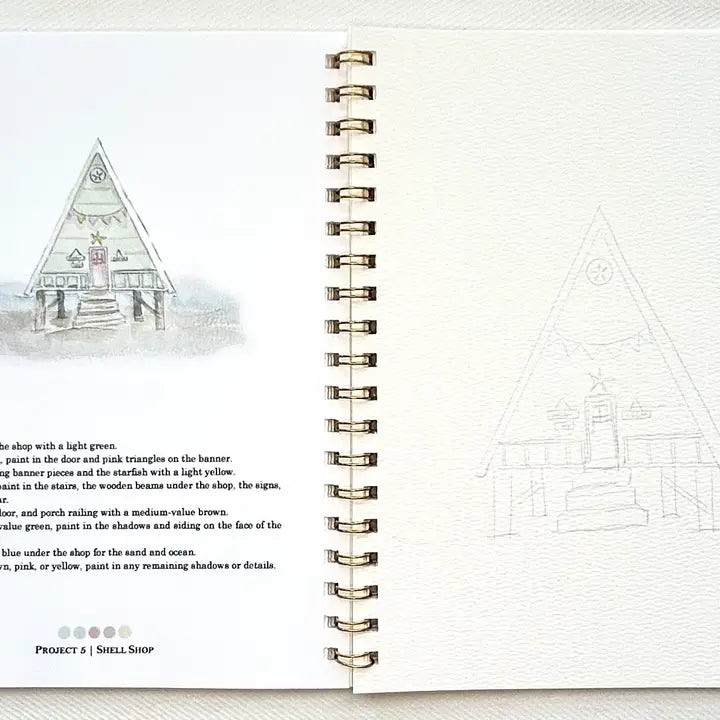 he shop with a light green.
, paint in the door and pink triangles on the banner.
ng banner pieces and the starfish with a light yellow.
aint in the stairs, the wooden beams under the shop, the signs,
ar.
loor, and porch railing with a medium-value brown.
value green, paint in the shadows and siding on the face of the
blue under the shop for the sand and ocean.
wn, pink, or yellow, paint in any remaining shadows or details.
PROJECT 5 | SHELL SHOP